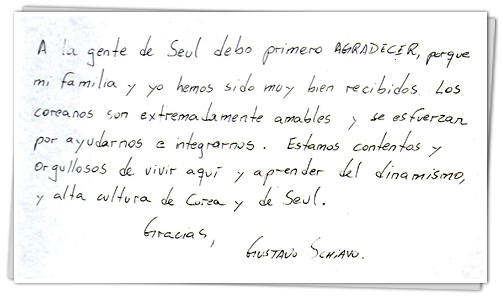 A la gente de Seul debo primero AGRADECER, porque
mi familia y yo hemos sido muy bien recibidos. Los
coreanos son extremadamente amables y se esfuerzan
por ayudarnos e integrarnos. Estamos contentos y
orgullosos de vivir aquí y aprender del dinamismo,
y alta cultura de Corea y de Seul.
Gracias,
GUSTAVO SCHIAVO.